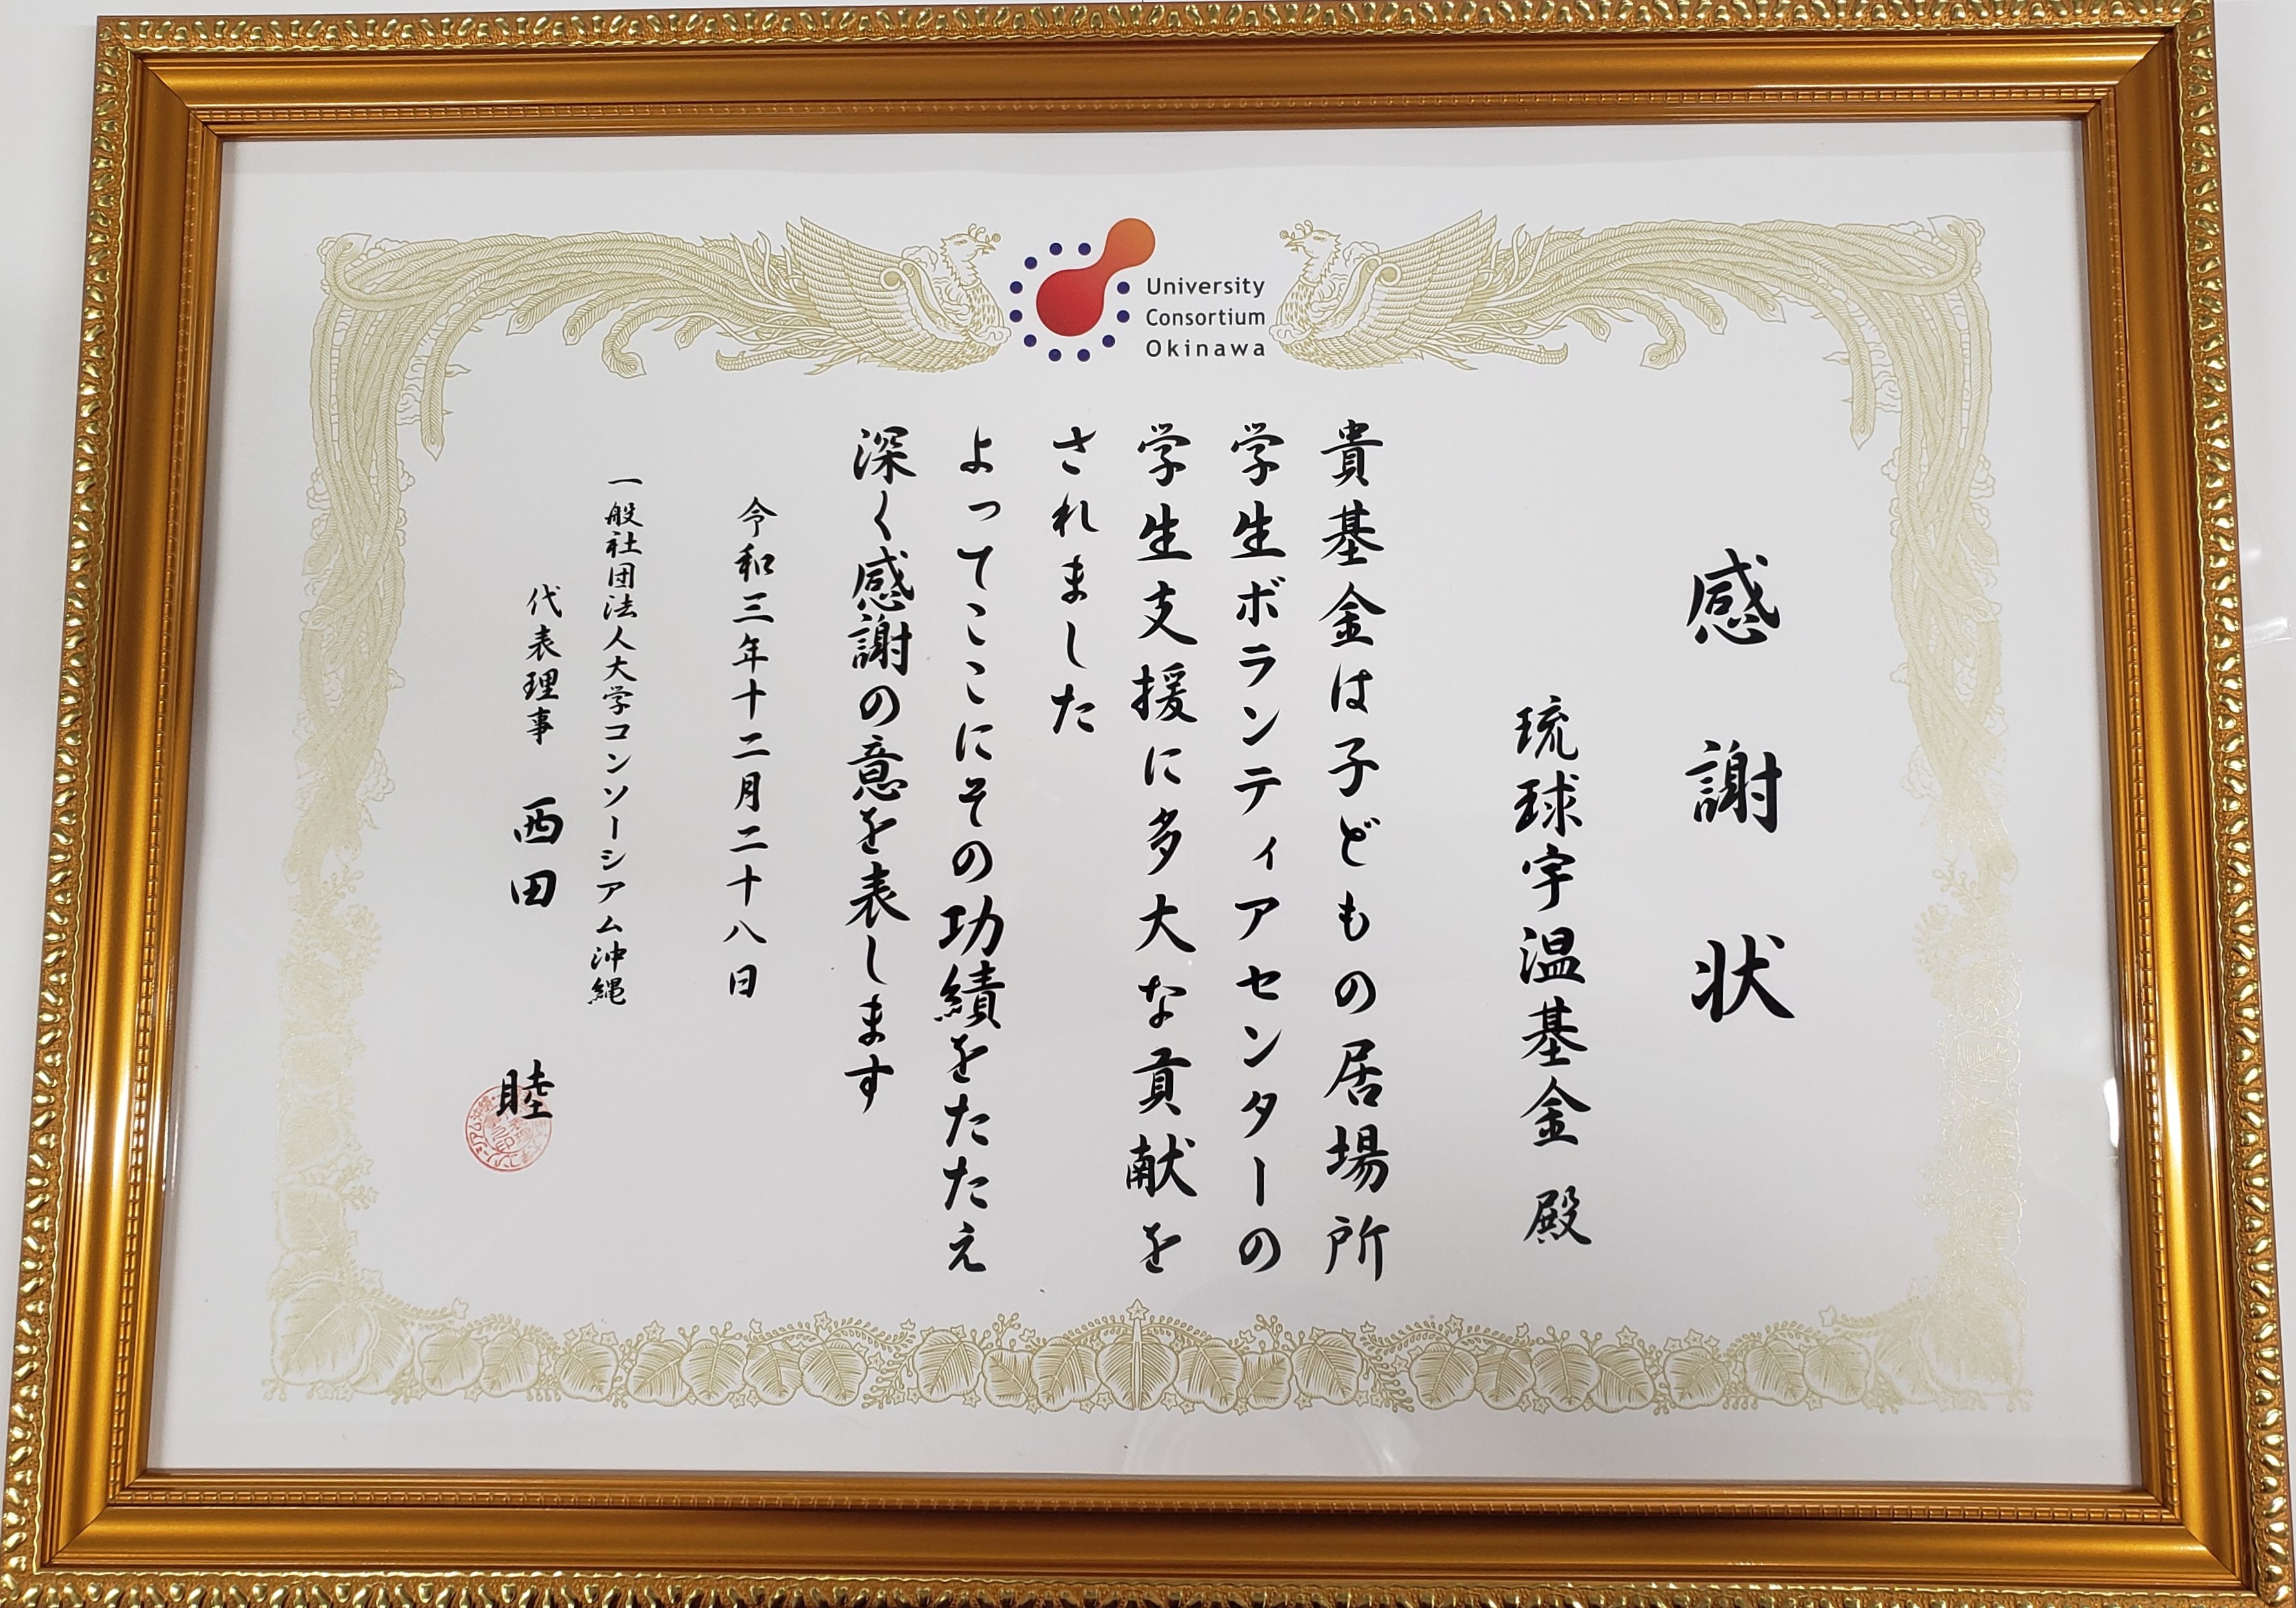 University
Consortium
Okinawa
感謝状
琉球宇温基金 殿
貴基金は子どもの居場所
学生ボランティアセンターの
学生支援に多大な貢献を
されました
よってここにその功績をたたえ
深く感謝の意を表します
令和三年十二月二十八日
一般社団法人大学コンソーシアム沖縄
代表理事 西田 睦